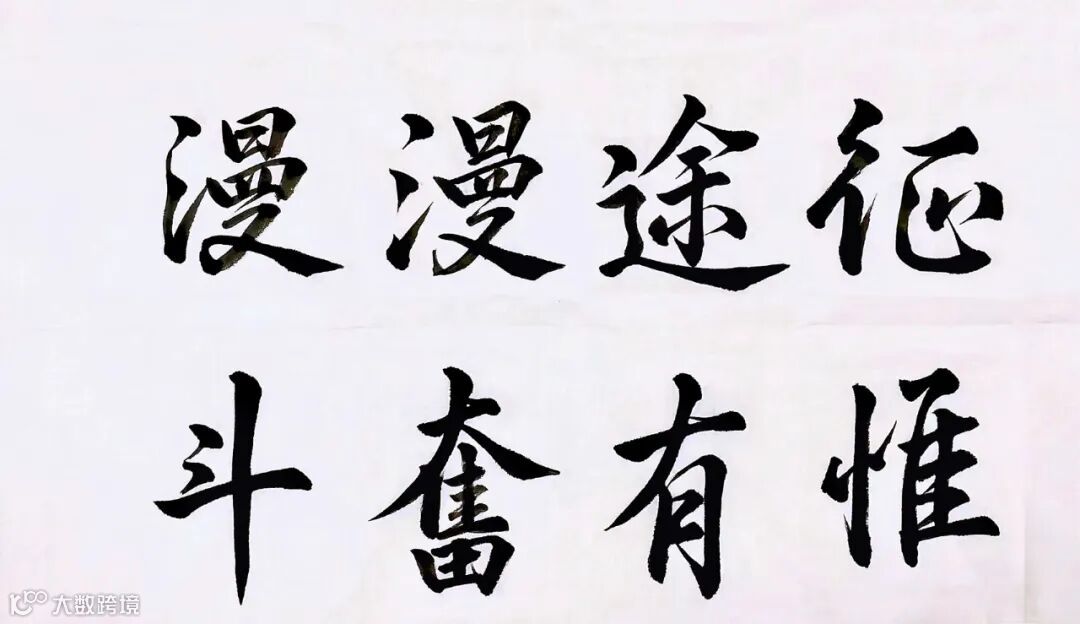 征途漫漫
惟有奋斗
大数跨境